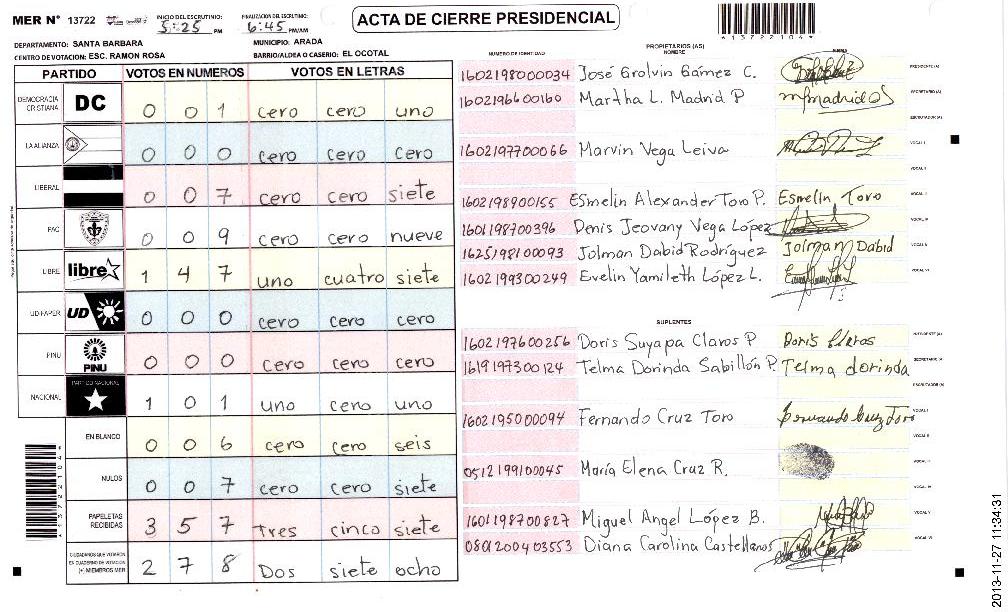 MER N° 13722
INICIO DEL ESCRUTINIO: 5:25 PM
FINALIZACION DEL ESCRUTINIO: 6:45 PM/AM
ACTA DE CIERRE PRESIDENCIAL
DEPARTAMENTO: SANTA BARBARA
MUNICIPIO: ARADA
CENTRO DE VOTACION: ESC. RAMON ROSA
BARRIO/ALDEA O CASERIO: EL OCOTAL
PARTIDO VOTOS EN NUMEROS VOTOS EN LETRAS
DEMOCRACIA CRISTIANA DC 0 0 1 cero cero uno
LA ALIANZA 0 0 0 cero cero cero
LIBERAL 0 0 7 cero cero siete
PAC 0 0 9 cero cero nueve
LIBRE libre 1 4 7 uno cuatro siete
UD-FAPER UD 0 0 0 cero cero cero
PINU PINU 0 0 0 cero cero cero
NACIONAL PARTIDO NACIONAL 1 0 1 uno cero uno
EN BLANCO 0 0 6 cero cero seis
NULOS 0 0 7 cero cero siete
PAPELETAS RECIBIDAS 3 5 7 Tres cinco siete
CIUDADANOS QUE VOTARON EN CUADERNO DE VOTACION (+) MIEMBROS MER 2 7 8 Dos siete ocho
*13722104*
NUMERO DE IDENTIDAD
PROPIETARIOS (AS)
NOMBRE
FIRMA
1602198000034 José Grolvin Gámez C. PRESIDENTE (A)
1602196600160 Martha L. Madrid P mfmadrid SECRETARIO (A)
ESCRUTADOR (A)
1602197700066 Marvin Vega Leiva VOCAL I
VOCAL II
1602198900155 Esmelin Alexander Toro P. Esmelin Toro
1601198700396 Denis Jeovany Vega López
1625198100093 Jolman Dabid Rodríguez Jolman Dabid
1602199300249 Evelin Yamileth López L. VOCAL VI
SUPLENTES
1602197600256 Doris Suyapa Claros P Doris Claros
1619197300124 Telma Dorinda Sabillón P. Telma dorinda SECRETARIO (A)
ESCRUTADOR (A)
1602195000094 Fernando Cruz Toro Fernando Cruz Toro VOCAL I
0512199100045 María Elena Cruz R.
1601198700827 Miguel Angel López B. VOCAL V
0801200403553 Diana Carolina Castellanos VOCAL VI
2013-11-27 11:34:31